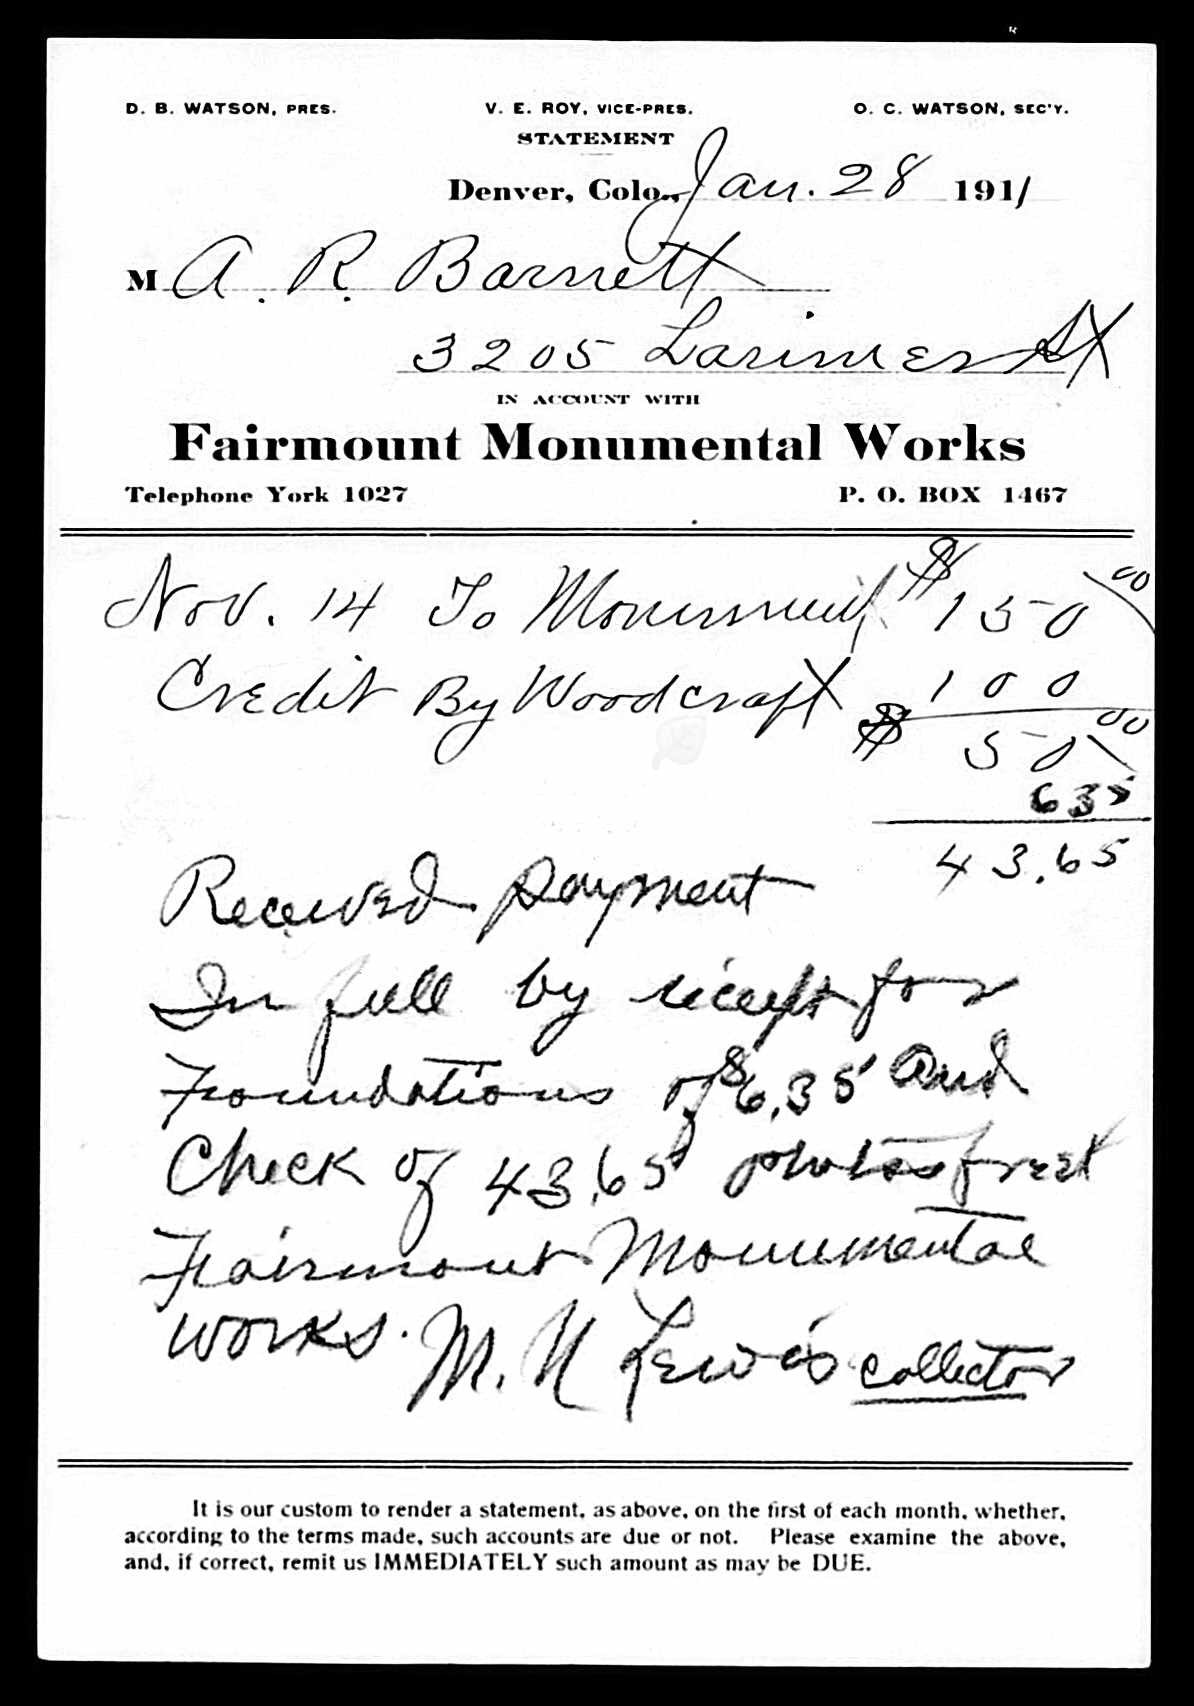 D. B. WATSON, PRES. V. E. ROY, VICE-PRES. O. C. WATSON, SEC'Y.
STATEMENT
Denver, Colo., Jan. 28 1911
M A. R. Barnett
3205 Larimer St
IN ACCOUNT WITH
Fairmount Monumental Works
Telephone York 1027 P. O. BOX 1467
Nov. 14 To Monument $ 150 00
Credit By Woodcraft 100
$ 50 00
635
43.65
Received payment
In full by receipt for
Foundations of $6.35 and
Check of 43.65
Fairmount Monumental
Works. M. N Lewis collector
It is our custom to render a statement, as above, on the first of each month, whether,
according to the terms made, such accounts are due or not. Please examine the above,
and, if correct, remit us IMMEDIATELY such amount as may be DUE.